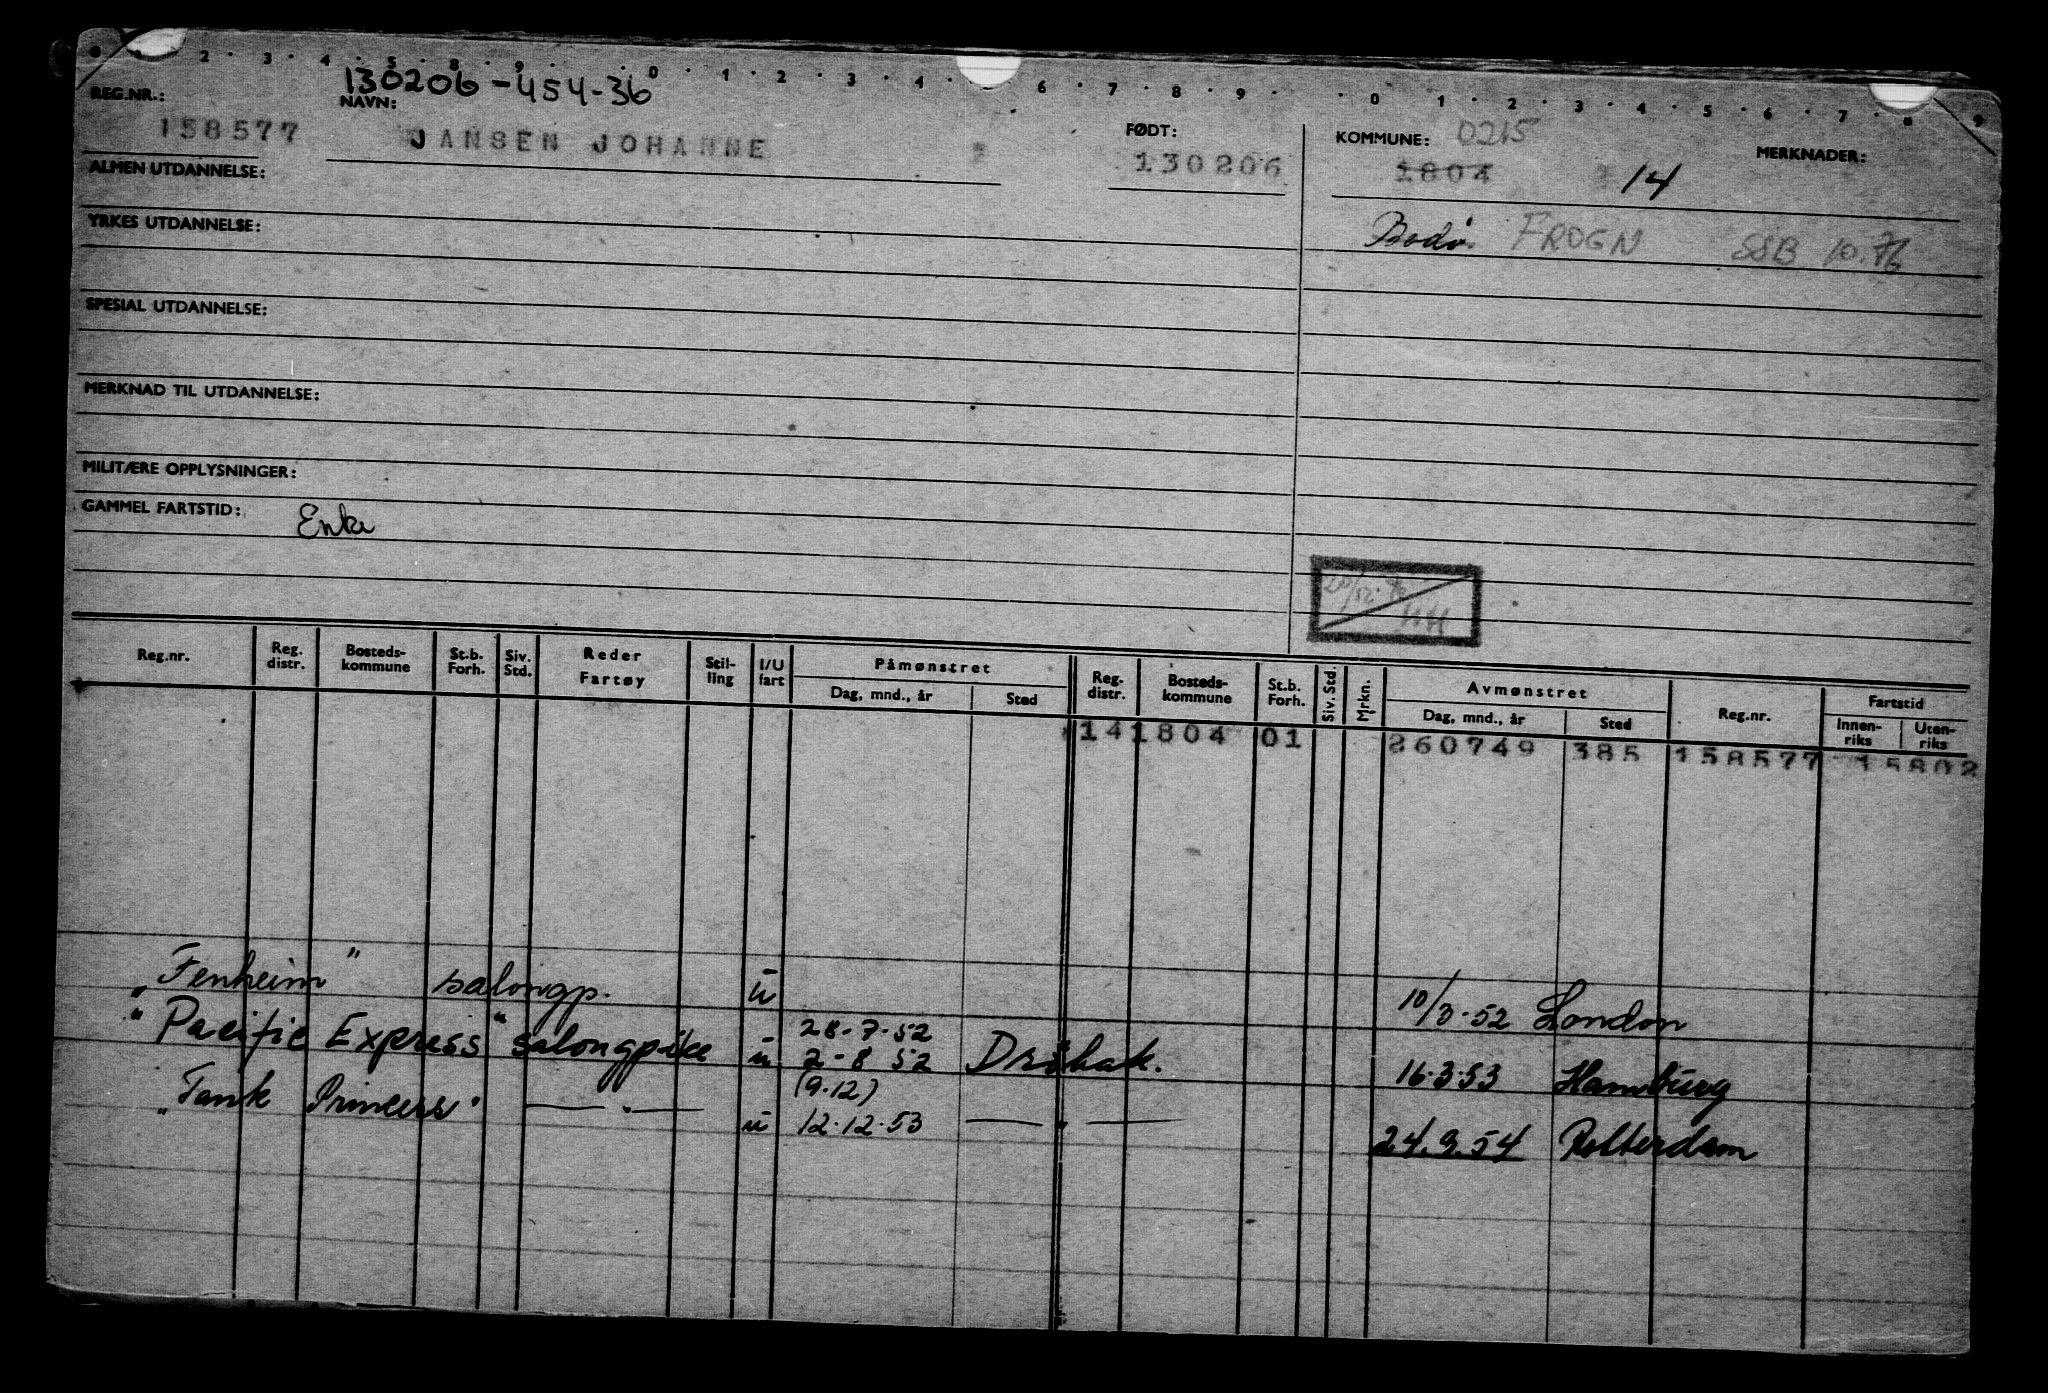 1 2 3 4 5 6 7 8 9 0 1 2 3 4 6 7 8 9 0 1 2 3 4 5 6 7 8 9
130206-454-36
REG.NR.: NAVN: FØDT: KOMMUNE: 0215 MERKNADER:
158577 JANSEN JOHANNE 130206 1804 14
ALMEN UTDANNELSE:
Bodø. FROGN SSB 10.76
YRKES UTDANNELSE:
SPESIAL UTDANNELSE:
MERKNAD TIL UTDANNELSE:
MILITÆRE OPPLYSNINGER:
GAMMEL FARTSTID: Enke
HH
Reg.nr. Reg. distr. Bosteds-kommune St.b. Forh. Siv. Std. Reder Fartøy Stil-ling I/U fart Påmønstret Reg. distr. Bosteds-kommune St.b. Forh. Siv. Std. Mrkn. Avmønstret Reg.nr. Fartstid
Dag, mnd., år Sted Dag, mnd., år Sted Innen-riks Uten-riks
14 1804 01 260749 385 158577 15802
"Fenheim" salongp. u 10/3.52 London
28.7.52
"Pacific Express" salongpike u 2-8 52 Drøbak. 16.3.53 Hamburg
(9.12)
"Tank Princess" —"— u 12.12.53 —"— 24.9.54 Rotterdam